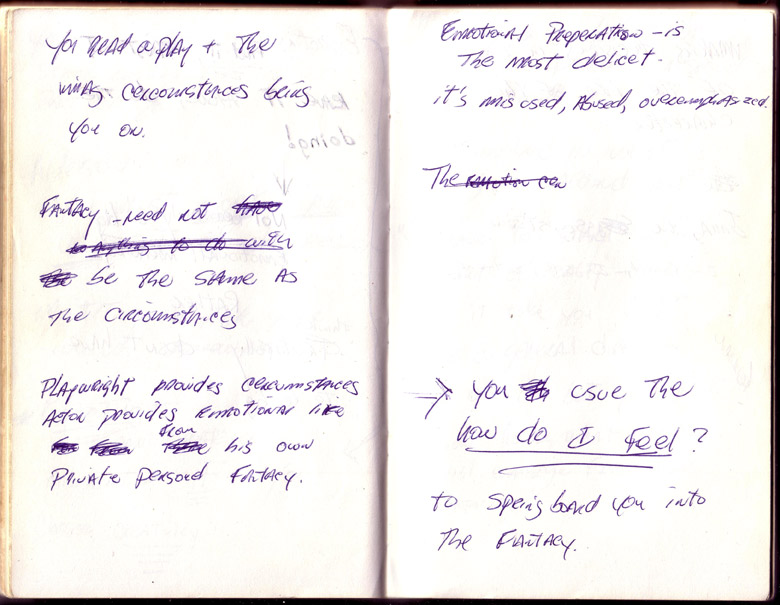 You read a play + the
imag. circumstances bring
you on.
Fantacy - need not have
to anything to do with
be the same as
the circumstances
Playwright provides circumstances
Actor provides emotional life
from his own
Private personal fantacy.
Emotional Preperation - is
The most delicet.
it's misused, Abused, overemphasized.
The emotion can
→ You usue the
how do I feel?
to springboard you into
the Fantacy.
doing!